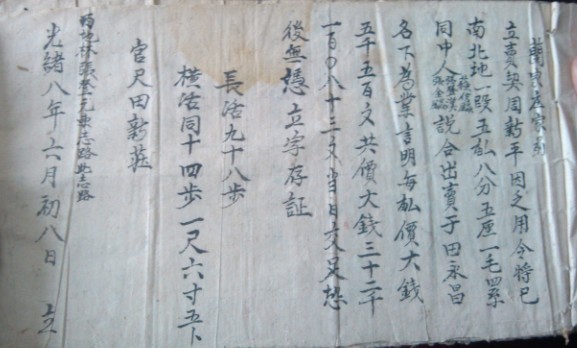 立賣契周新平因乏用今將已
南北地一叚五畝八分五厘一毛四系
同中人說合出賣于田永昌
名下為業言明每畝價大錢
五千五百文共價大錢三十二千
一百〇八十三文当日交足恐
後無憑立字存証
長活九十八步
橫活同十四步一尺六寸五卜
官尺田新莊
光緒八年六月初八日 立